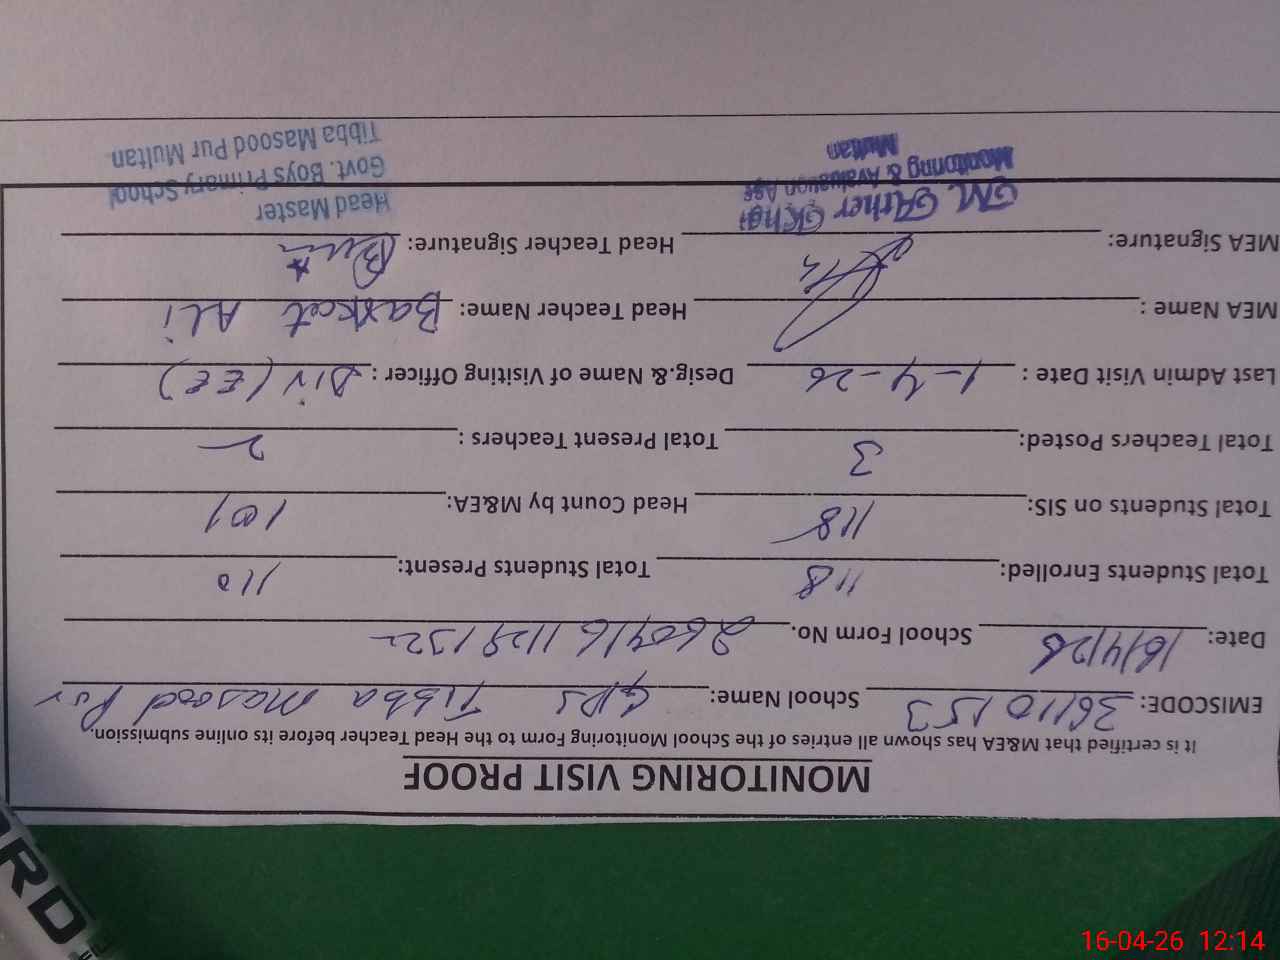 MONITORING VISIT PROOF
It is certified that M&EA has shown all entries of the School Monitoring Form to the Head Teacher before its online submission.
EMISCODE: 36110153 School Name: GPS Tibba Masood Pur
Date: 16/4/26 School Form No. 26041611291322
Total Students Enrolled: 118 Total Students Present: 110
Total Students on SIS: 118 Head Count by M&EA: 101
Total Teachers Posted: 3 Total Present Teachers : 2
Last Admin Visit Date : 1-4-26 Desig.& Name of Visiting Officer : (EE)
MEA Name : Head Teacher Name: Barkat Ali
MEA Signature: Head Teacher Signature:
Monitoring & Avaluation
Multan
Head Master
Govt. Boys Primary School
Tibba Masood Pur Multan
RD
16-04-26 12:14